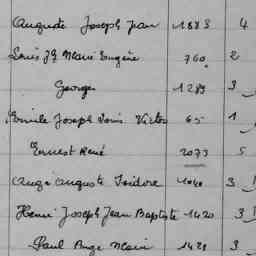 Auguste Joseph Jean 1883 4
Louis Jh Marie Eugène 760 2
Georges 1289 3
Emile Joseph Louis Victor 65 1
Ernest René 2073 5
Ange Auguste Isidore 1040 3
Henri Joseph Jean Baptiste 1420 3
Paul Ange Marie 1429 3